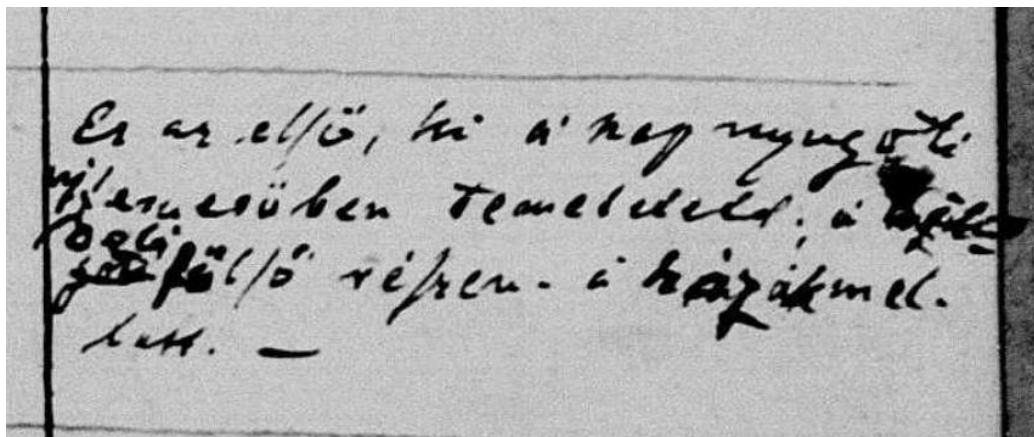 Ez az első, ki a' nap nyugoti
új temetőben temettetett, a'
fölső részen. a' házak mel-
lett. —